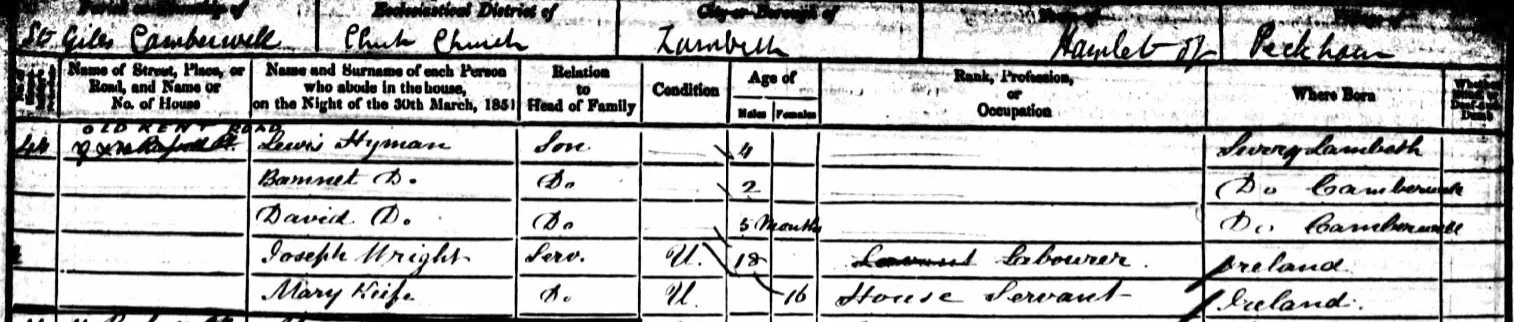 Parish or Township of Ecclesiastical District of City or Borough of Town of Village of
St Giles Camberwell Christ Church Lambeth Hamlet of Peckham
Name of Street, Place, or Road, and Name or No. of House Name and Surname of each Person who abode in the house, on the Night of the 30th March, 1851 Relation to Head of Family Condition Age of Males Females Rank, Profession, or Occupation Where Born Whether Deaf-and-Dumb
OLD KENT ROAD
Lewis Hyman Son 4 Surrey Lambeth
Barnnet Do. Do 2 Do Camberwell
David Do. Do 5 Months Do Camberwell
Joseph Wright Serv. U. 18 Labourer. Ireland
Mary Keife Do U. 16 House Servant Ireland.